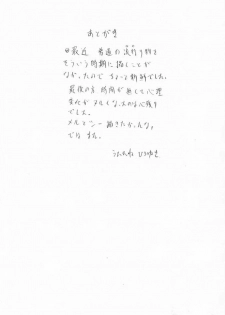 あとがき
最近 普通の流行り物を
そういう時期に描くことが
なかったので ちょっと新鮮でした。
最後の方 時間が無くて心理
変化が メルくな、たのは心残り
でした。
描きたかったな。
では また。
ひろゆき